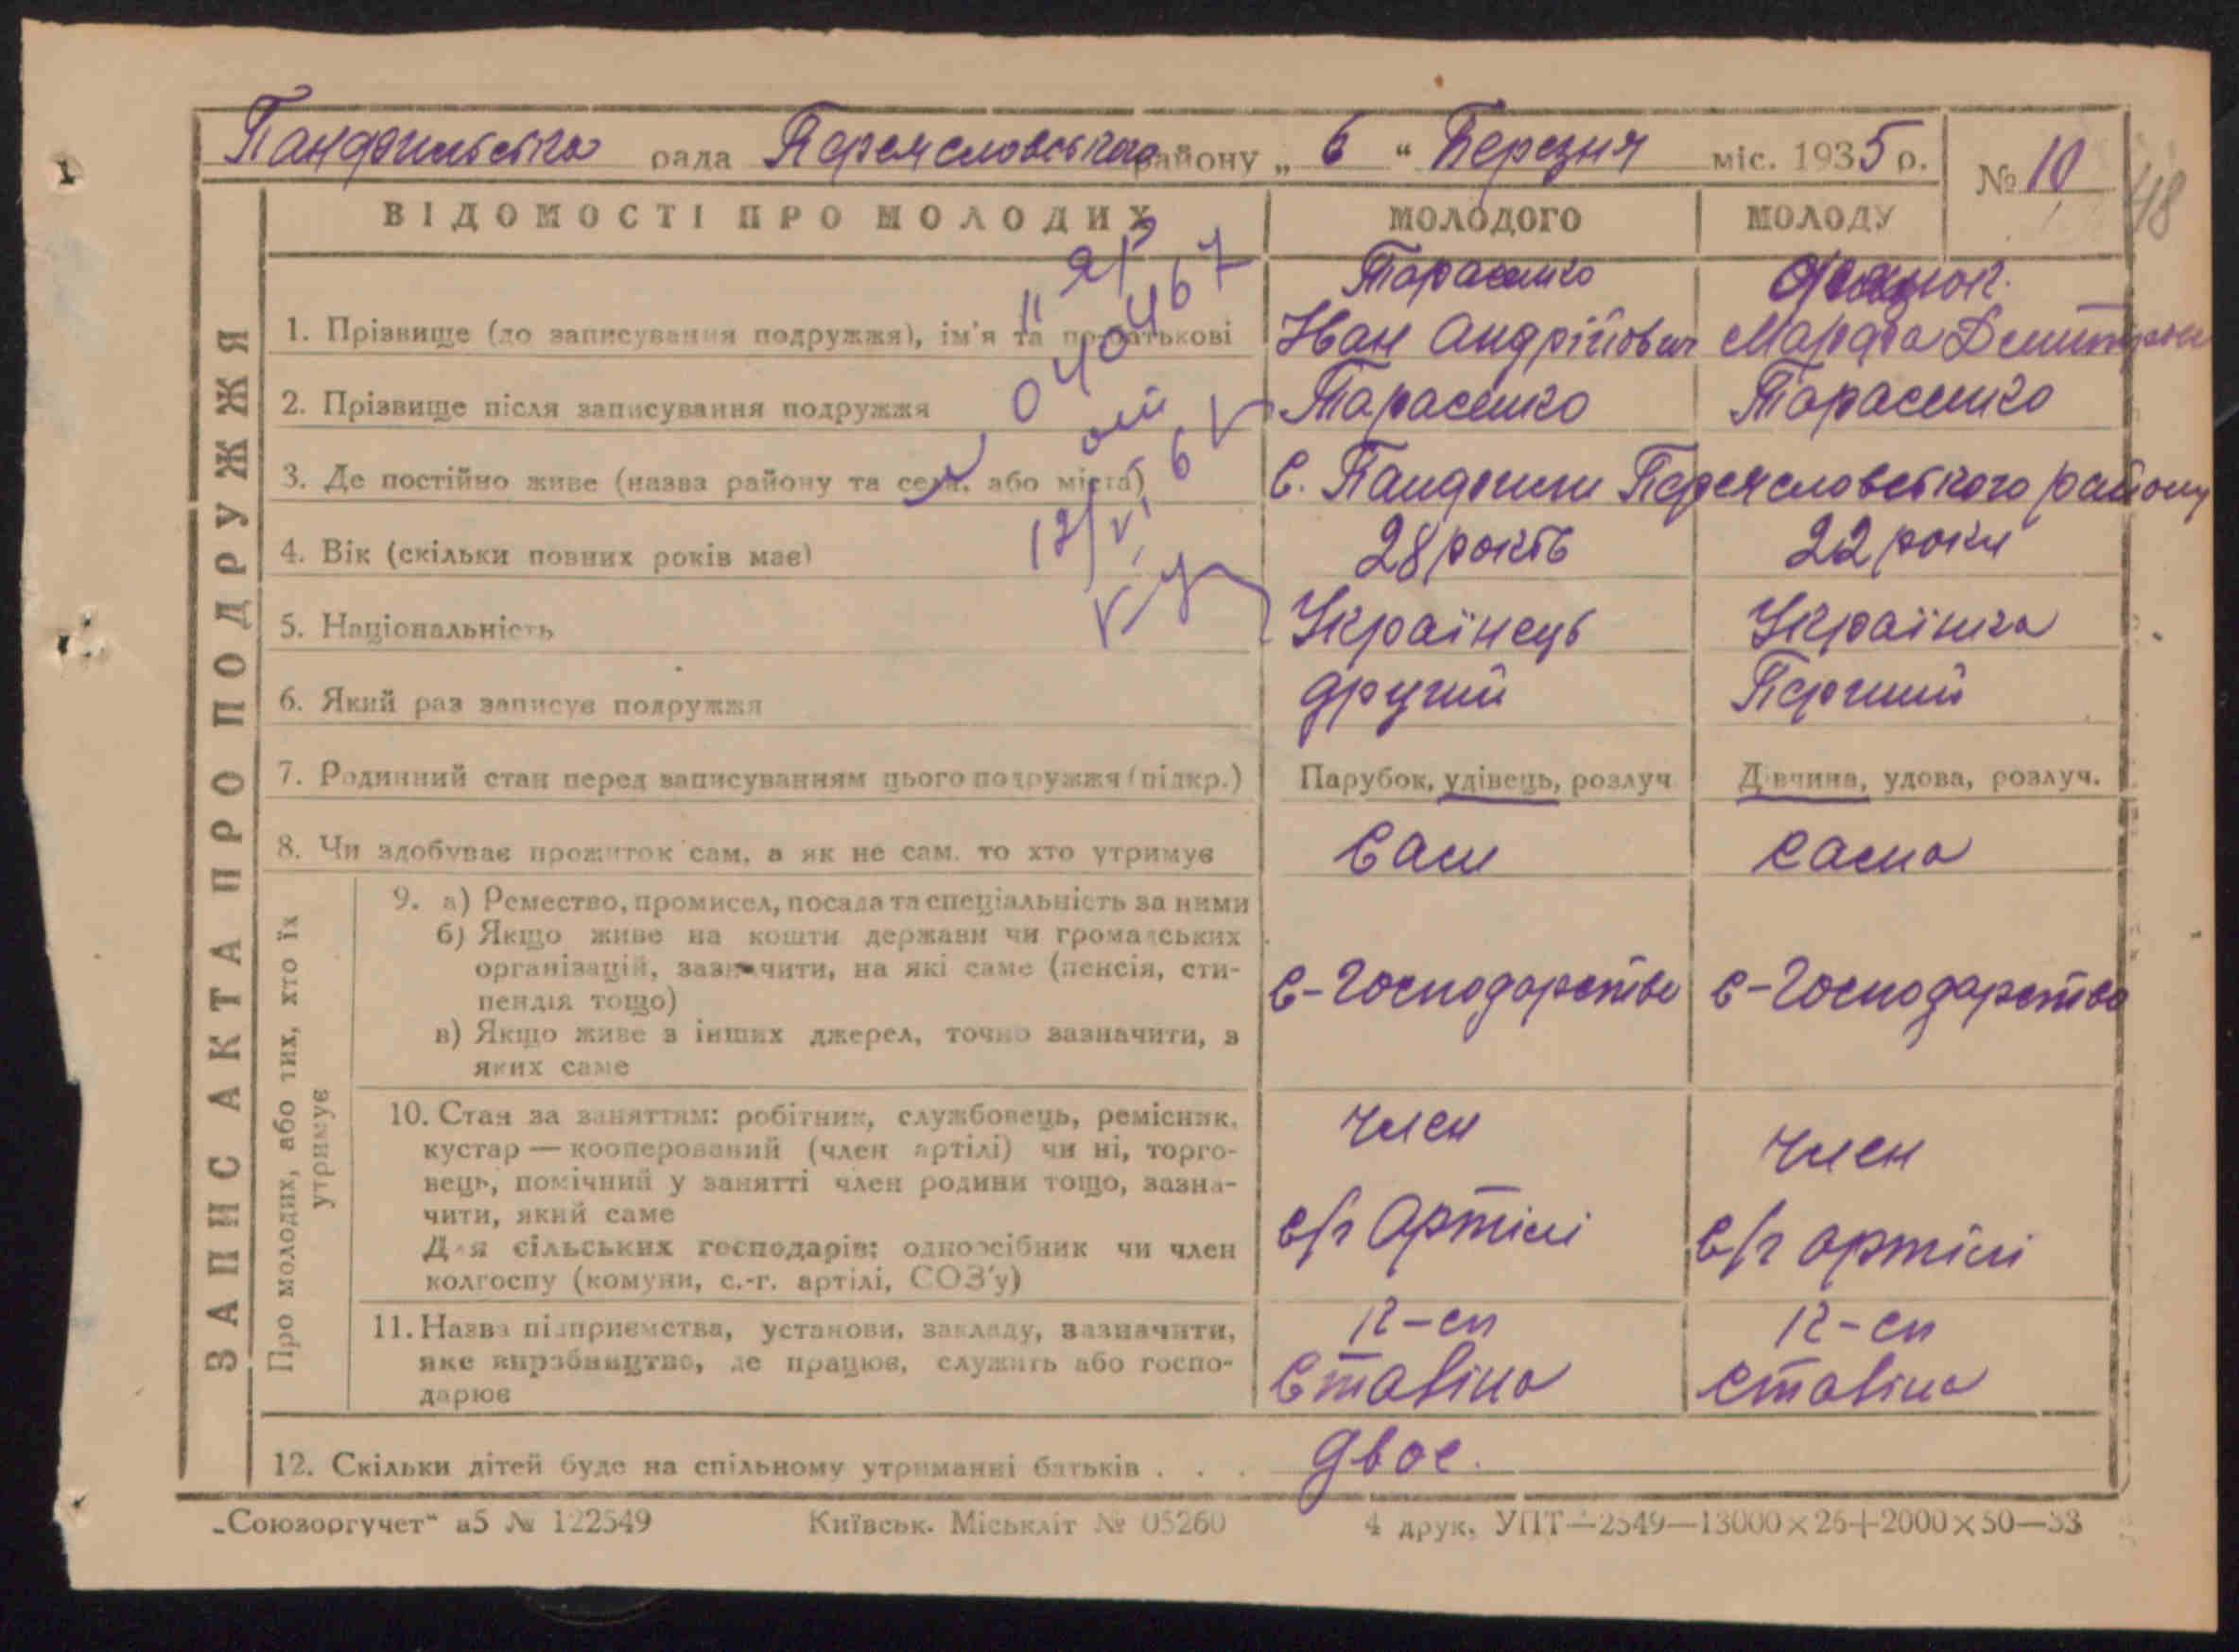 рада Переяславського району „ 6 “ Березня міс. 1935 р.
№ 10
48
ВІДОМОСТІ ПРО МОЛОДИХ
МОЛОДОГО
МОЛОДУ
ЗАПИС АКТА ПРО ПОДРУЖЖЯ
1. Прізвище (до записування подружжя), ім'я та по-батькові
Тарасенко
Іван Андрійович
Марфа
2. Прізвище після записування подружжя
Тарасенко
Тарасенко
3. Де постійно живе (назва району та села, або міста)
с. Пандоили Переясловського району
4. Вік (скільки повних років має)
28 років
22 роки
5. Національність
Українець
Українка
6. Який раз записує подружжя
другий
Перший
7. Родинний стан перед записуванням цього подружжя (підкр.)
Парубок, удівець, розлуч
Дівчина, удова, розлуч.
8. Чи здобуває прожиток сам, а як не сам, то хто утримує
Сам
сама
Про молодих, або тих, хто їх
утримує
9. а) Ремество, промисел, посада та спеціальність за ними
б) Якщо живе на кошти держави чи громадських
організацій, зазначити, на які саме (пенсія, сти-
пендія тощо)
в) Якщо живе з інших джерел, точно зазначити, з
яких саме
с-Господарство
с-Господарство
10. Стан за заняттям: робітник, службовець, ремісник,
кустар — кооперований (член артілі) чи ні, торго-
вець, помічний у занятті член родини тощо, зазна-
чити, який саме
Для сільських господарів: одноосібник чи член
колгоспу (комуни, с.-г. артілі, СОЗ'у)
член
с/г Артілі
член
с/г артілі
11. Назва підприємства, установи, закладу, зазначити,
яке виробництво, де працює, служить або госпо-
дарює
к-сп
Сталіна
к-сп
Сталіна
12. Скільки дітей буде на спільному утриманні батьків . . .
двоє.
„Союзоргучет“ а5 № 122549
Київськ. Міськліт № 05260
4 друк. УПТ—2549—13000×26+2000×50—33